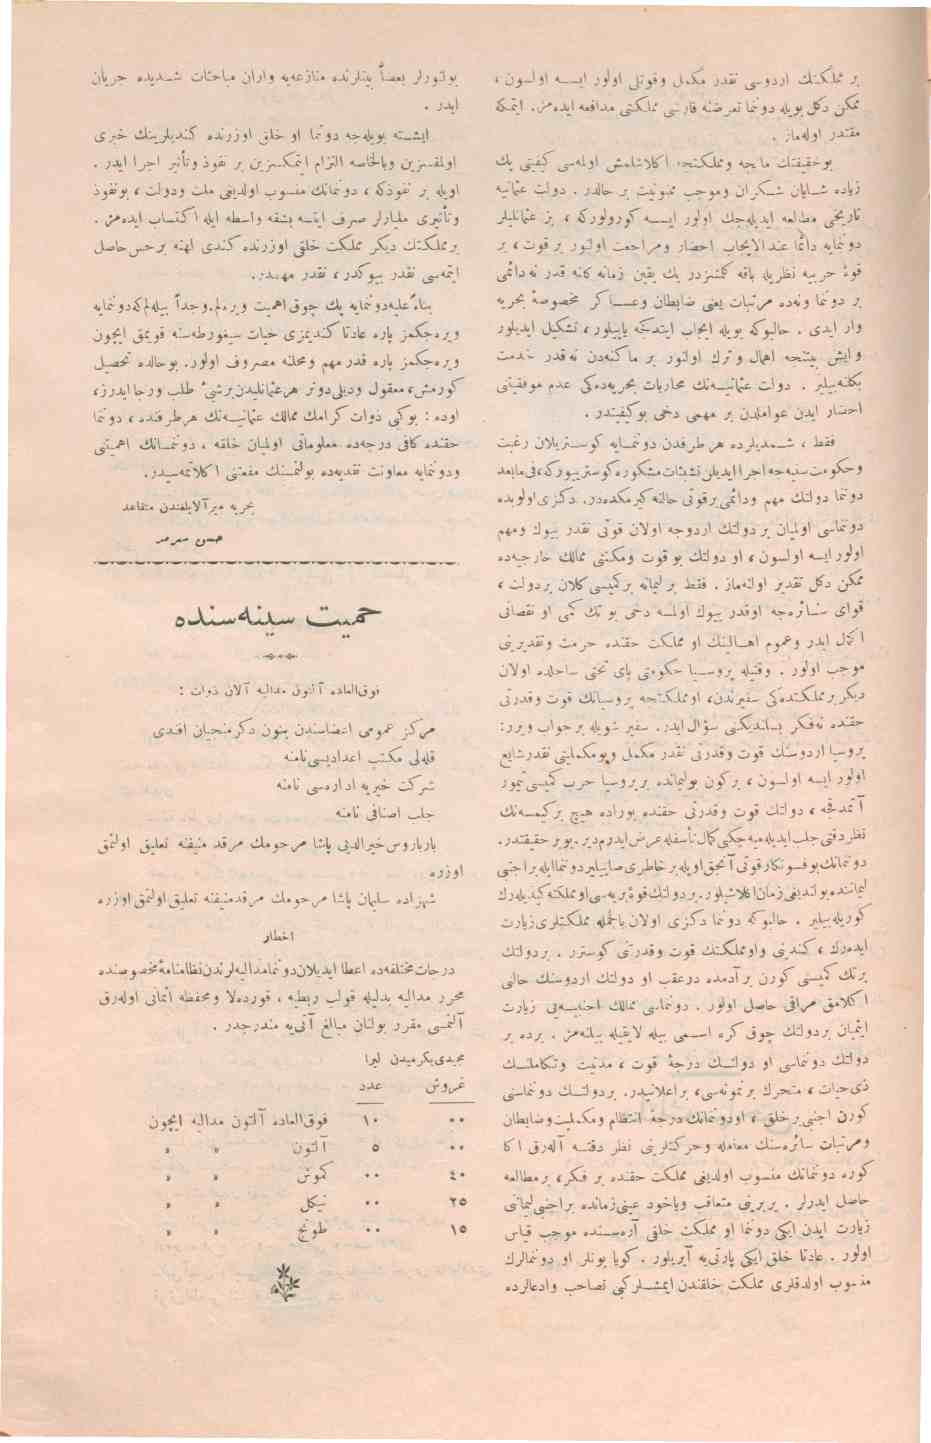 بر مملكتك اردوسی نقدر مكمل وقوتلی اولور ايسـه اولسون ،
ممكن دكل بويله دونما تعرضنه قارشی مملكتی مدافعه ايده‌مز. ايتمكه
مقتدر اوله‌ماز .
بوحقيقتك مابجه ومملكتجه اكلاشلمش اولمه‌سی كيفيتی پك
زياده شـايان شـكران وموجب ممنونيت بر حالدر . دولت عثمانيه
تاريخی مطالعه ايديله‌جك اولور ايسـه كورولوركه ، بز عثمانليلر
دونمايه دائما عندالايجاب احضار ومراجعت اولنور بر قوت ، بر
قوۀ حربيه نظريله باقه كلمشزدر پك يقين زمانه كلنه قدر نه‌دائمی
بر دونما ونه‌ده مرتبات يعنی ضابطان وعسـاكر مخصوصۀ بحريه
وار ايدی . حالبوكه بويله ايجاب ايتدكجه ياپيلور ، تشكيل ايديلور
وايش بيتنجه اهمال وترك اولنور بر ماكنه‌دن نه‌قدر خدمت
بكلنه‌بيلير . دولت عثمانيـه‌نك محاربات بحريه‌ده‌كی عدم موفقيتی
احضار ايدن عواملدن بر مهمی دخی بوكيفيتدر .
فقط ، شـمديلرده هر طرفدن دونمـايه كوسـتريلان رغبت
وحكومت سنيه‌جه اجرا ايديلن تشبثات مشكوره كوستريوركه، فی‌مابعد
دونما دولتك مهم ودائمی برقوتی حالنه كيرمكده‌در. دكزی اولوبده
دونماسی اولميان بر دولتك اردوجه اولان قوتی نقدر بيوك ومهم
اولور ايسـه اولسون ، او دولتك بو قوت ومكنتی ممالك خارجيه‌ده
ممكن دكل تقدير اولنه‌ماز . فقط بر ليمانه بركميسی كلان بردولت ،
قوای سـائره‌جه اوقدر بيوك اولمسه دخی بو تك كمی او نقصانی
اكمال ايدر وعموم اهـالينك او مملكت حقنده حرمت وتقديرينی
موجب اولور . وقتيله پروسـيا حكومتی پای تختی سـاحلده اولان
ديكر برمملكتده‌كی سفيرندن، اومملكتجه پروسيانك قوت وقدرتی
حقنده نه‌فكر بسلنديكنی سؤال ايدر. سفير شويله بر جواب ويرر:
پروسيا اردوسنك قوت وقدرتی نقدر مكمل وبومكمليتی نقدر شايع
اولور ايسه اولسون ، بركون بوليمانده بر پروسيا حرب كميسی تيمور
آتمدقجه ، دولتك قوت وقدرتی حقنده بوراده هيچ بركيمسه‌نك
نظر دقتی جلب ايديله‌ميه‌جكنی كمال تأسفله عرض ايدرم دير. بو بر حقيقتدر.
دونمانك بوفسونكار قوتی آنجق اويله بر خاطری صايلير دونما ايله بر اجنبی
ليماننده بولنديغی زمان اكلاشيلور. بردولتك قوۀ بريه‌سی او مملكته كيديله‌رك
كوريله‌بيلير . حالبوكه دونما دكزی اولان بالجمله مملكتلری زيارت
ايده‌رك ، كندنی واومملكتك قوت وقدرتنی كوسترر . بردولتك
برتك كميسنی كورن برآدمده درعقب او دولتك اردوسنك حالنی
اكلامق مراقی حاصل اولور . دونماسی ممالك اجنبيـه‌يی زيارت
ايتميان بردولتك چوق كره اسـمی بيله لايقيله بيلنه‌مز . برده بر
دولتك دونماسی او دولتـك درجۀ قوت ، مدنيت وتكاملنـك
ذی‌حيات ، متحرك برنمونه‌سی ، براعلانيدر. بردولتـك دونماسنی
كورن اجنبی برخلق ، اودونمانك درجۀ انتظام ومكمليت وضابطان
ومرتبات سائره‌سنك معامله وحركتلرينی نظر دقتـه آله‌رق اكا
كوره دونمانك منسوب اولديغی مملكت حقنده بر فكر، بر مطالعه
حاصل ايدرلر . بربرينی متعاقب وياخود عينی زمانده براجنبی ليماننی
زيارت ايدن ايكی دونما او مملكت خلقی آره‌سنده موجب قياس
اولور . عادتا خلق ايكی پارتی‌يه آيريلور . كويا بونلر او دونمالرك
منسوب اولدقلری مملكت خلقندن ايمشـلركبی تصاحب وادعالرده
بولنورلر بعضاً بينلرنده منازعه‌يه واران مباحثات شـديده جريان
ايدر .
ايشـته بويله‌جه دونما او خلق اوزرنده كنديلرينك خبری
اولمقسزين وبالخاصه التزام ايتمكسزين بر نفوذ وتأثير اجرا ايدر .
اويله بر نفوذكه ، دونمانك منسوب اولديغی ملت ودولت ، بونفوذ
وتأثيری مليارلر صرف ايتسه بشقه واسطه ايله اكتساب ايده‌مز.
برمملكتك ديكر مملكت خلقی اوزرنده كندی لهنه برحس حاصل
ايتمه‌سی نقدر بيوكدر ، نقدر مهمدر.
بناءً عليه دونمايه پك چوق اهميت ويره‌لم. وجداً بيله‌لم كه دونمايه
ويره‌جكمز پاره عادتا كنديمزی حيات سيغورطه‌سنه قويمق ايچون
ويره‌جكمز پاره قدر مهم ومحلنه مصروف اولور. بوحالده تحصيل
كورمش ، معقول وديلی دونر هرعثمانليدن برشیٔ طلب ورجا ايدرز ،
اوده : بوكبی ذوات كرامك ممالك عثمانيـه‌نك هرطرفنده ، دونما
حقنده كافی درجه‌ده معلوماتی اولميان خلقه ، دونمـانك اهميتنی
ودونمايه معاونت نقديه‌ده بولنمسنك منفعتنی اكلاتمه‌سيدر.
بحريه ميرآلايلغندن متقاعد
حميت سينه‌سنده
فوق‌العاده آلتون مداليه آلان ذوات :
مركز عمومی اعضاسندن بدون دكرمنجيان افندی
قله‌لی مكتب اعداديسی نامنه
شركت خيريه اداره‌سی نامنه
جلب اصنافی نامنه
بارباروس خيرالدين پاشا مرحومك مرقد منيفنه تعليق اولنمق
اوزره
شهزاده سليمان پاشا مرحومك مرقد منيفنه تعليق اولنمق اوزره
اخطار
درجات مختلفه‌ده اعطا ايديلان دونما مداليه‌لرندن نظامنامۀ مخصوصنده
محرر مداليه بدليله قولپ ربطيه ، قورده‌لا ومحفظه اثمانی اوله‌رق
آلنمسی مقرر بولنان مبالغ آتی‌يه مندرجدر .
مجيدی يكرميدن ليرا
غروش عدد
۰۰ ۱۰ فوق‌العاده آلتون مداليه ايچون
۰۰ ۵ آلتون » »
٤۰ ۰۰ كموش » »
۲۵ ۰۰ نيكل » »
۱۵ ۰۰ طونج » »